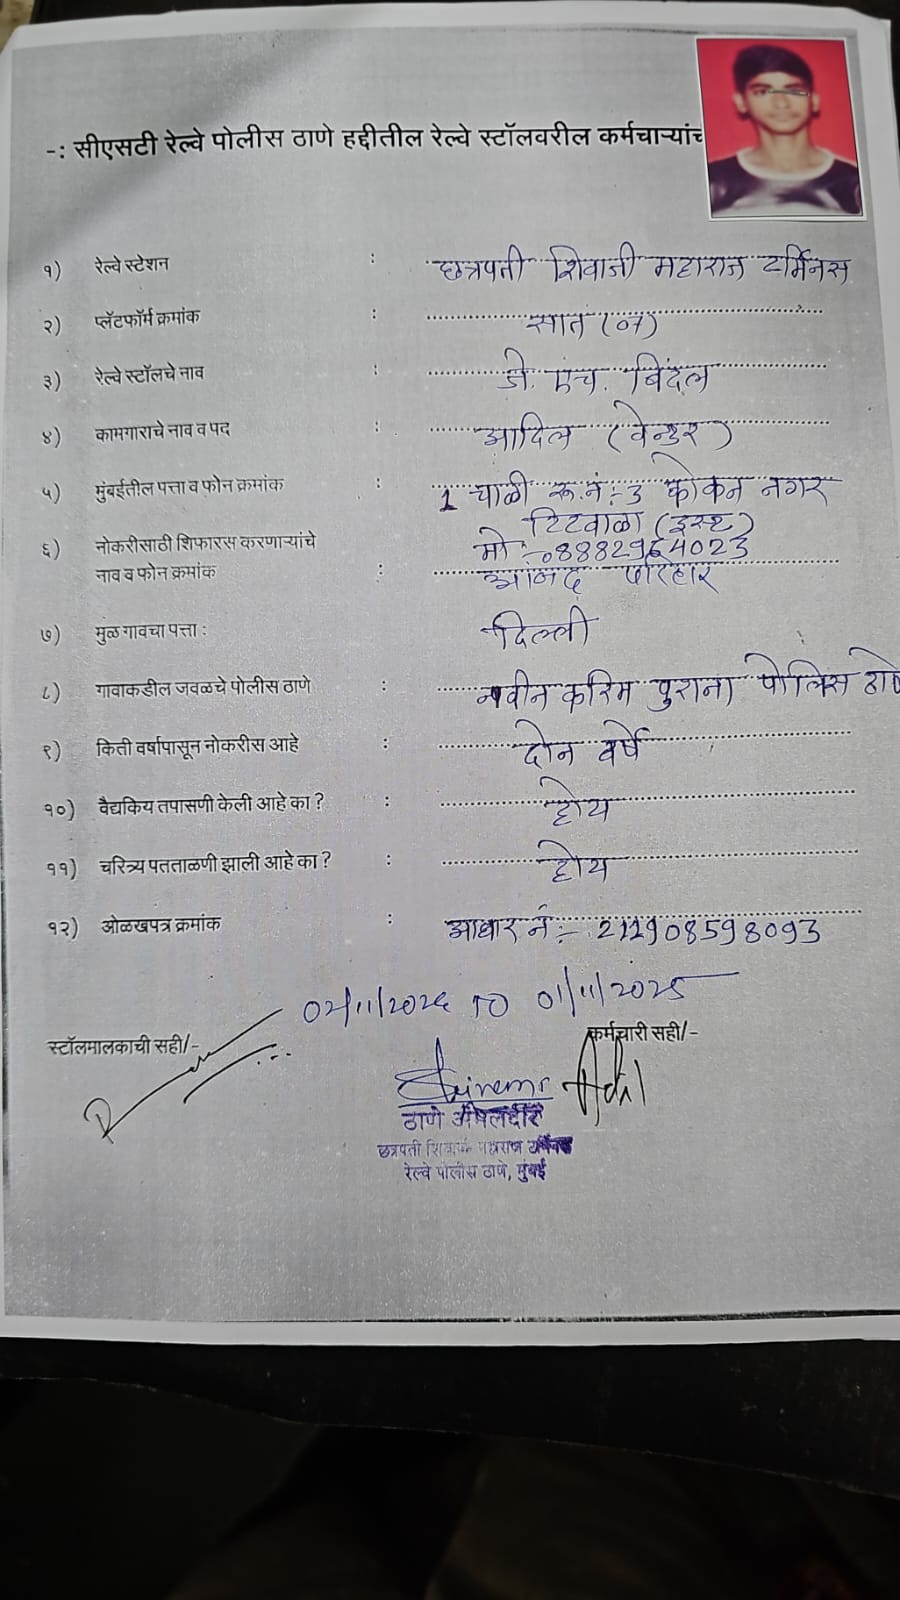 -: सीएसटी रेल्वे पोलीस ठाणे हद्दीतील रेल्वे स्टॉलवरील कर्मचाऱ्यांच
१) रेल्वे स्टेशन : छत्रपती शिवाजी महाराज टर्मिनस
२) प्लॅटफॉर्म क्रमांक : सात (07)
३) रेल्वे स्टॉलचे नाव : डी. एच. बिंदल
४) कामगाराचे नाव व पद : आदिल (वेन्डर)
५) मुंबईतील पत्ता व फोन क्रमांक : 1 चाळी रू.नं:-3 कोकन नगर
टिटवाळा (इस्ट)
६) नोकरीसाठी शिफारस करणाऱ्यांचे मो:-08882964023
नाव व फोन क्रमांक : आनंद परिहार
७) मुळ गावचा पत्ता : दिल्ली
८) गावाकडील जवळचे पोलीस ठाणे : नवीन करिम पुराना पोलिस ठाणे
९) किती वर्षापासून नोकरीस आहे : दोन वर्षे
१०) वैद्यकिय तपासणी केली आहे का ? : होय
११) चरित्र्य पतताळणी झाली आहे का ? : होय
१२) ओळखपत्र क्रमांक : आधार नं:- 211908598093
TO 01/11/2025
स्टॉलमालकाची सही/- कर्मचारी सही/-
Adil
ठाणे अंमलदार
छत्रपती शिवाजी महाराज टर्मिनस
रेल्वे पोलीस ठाणे, मुंबई